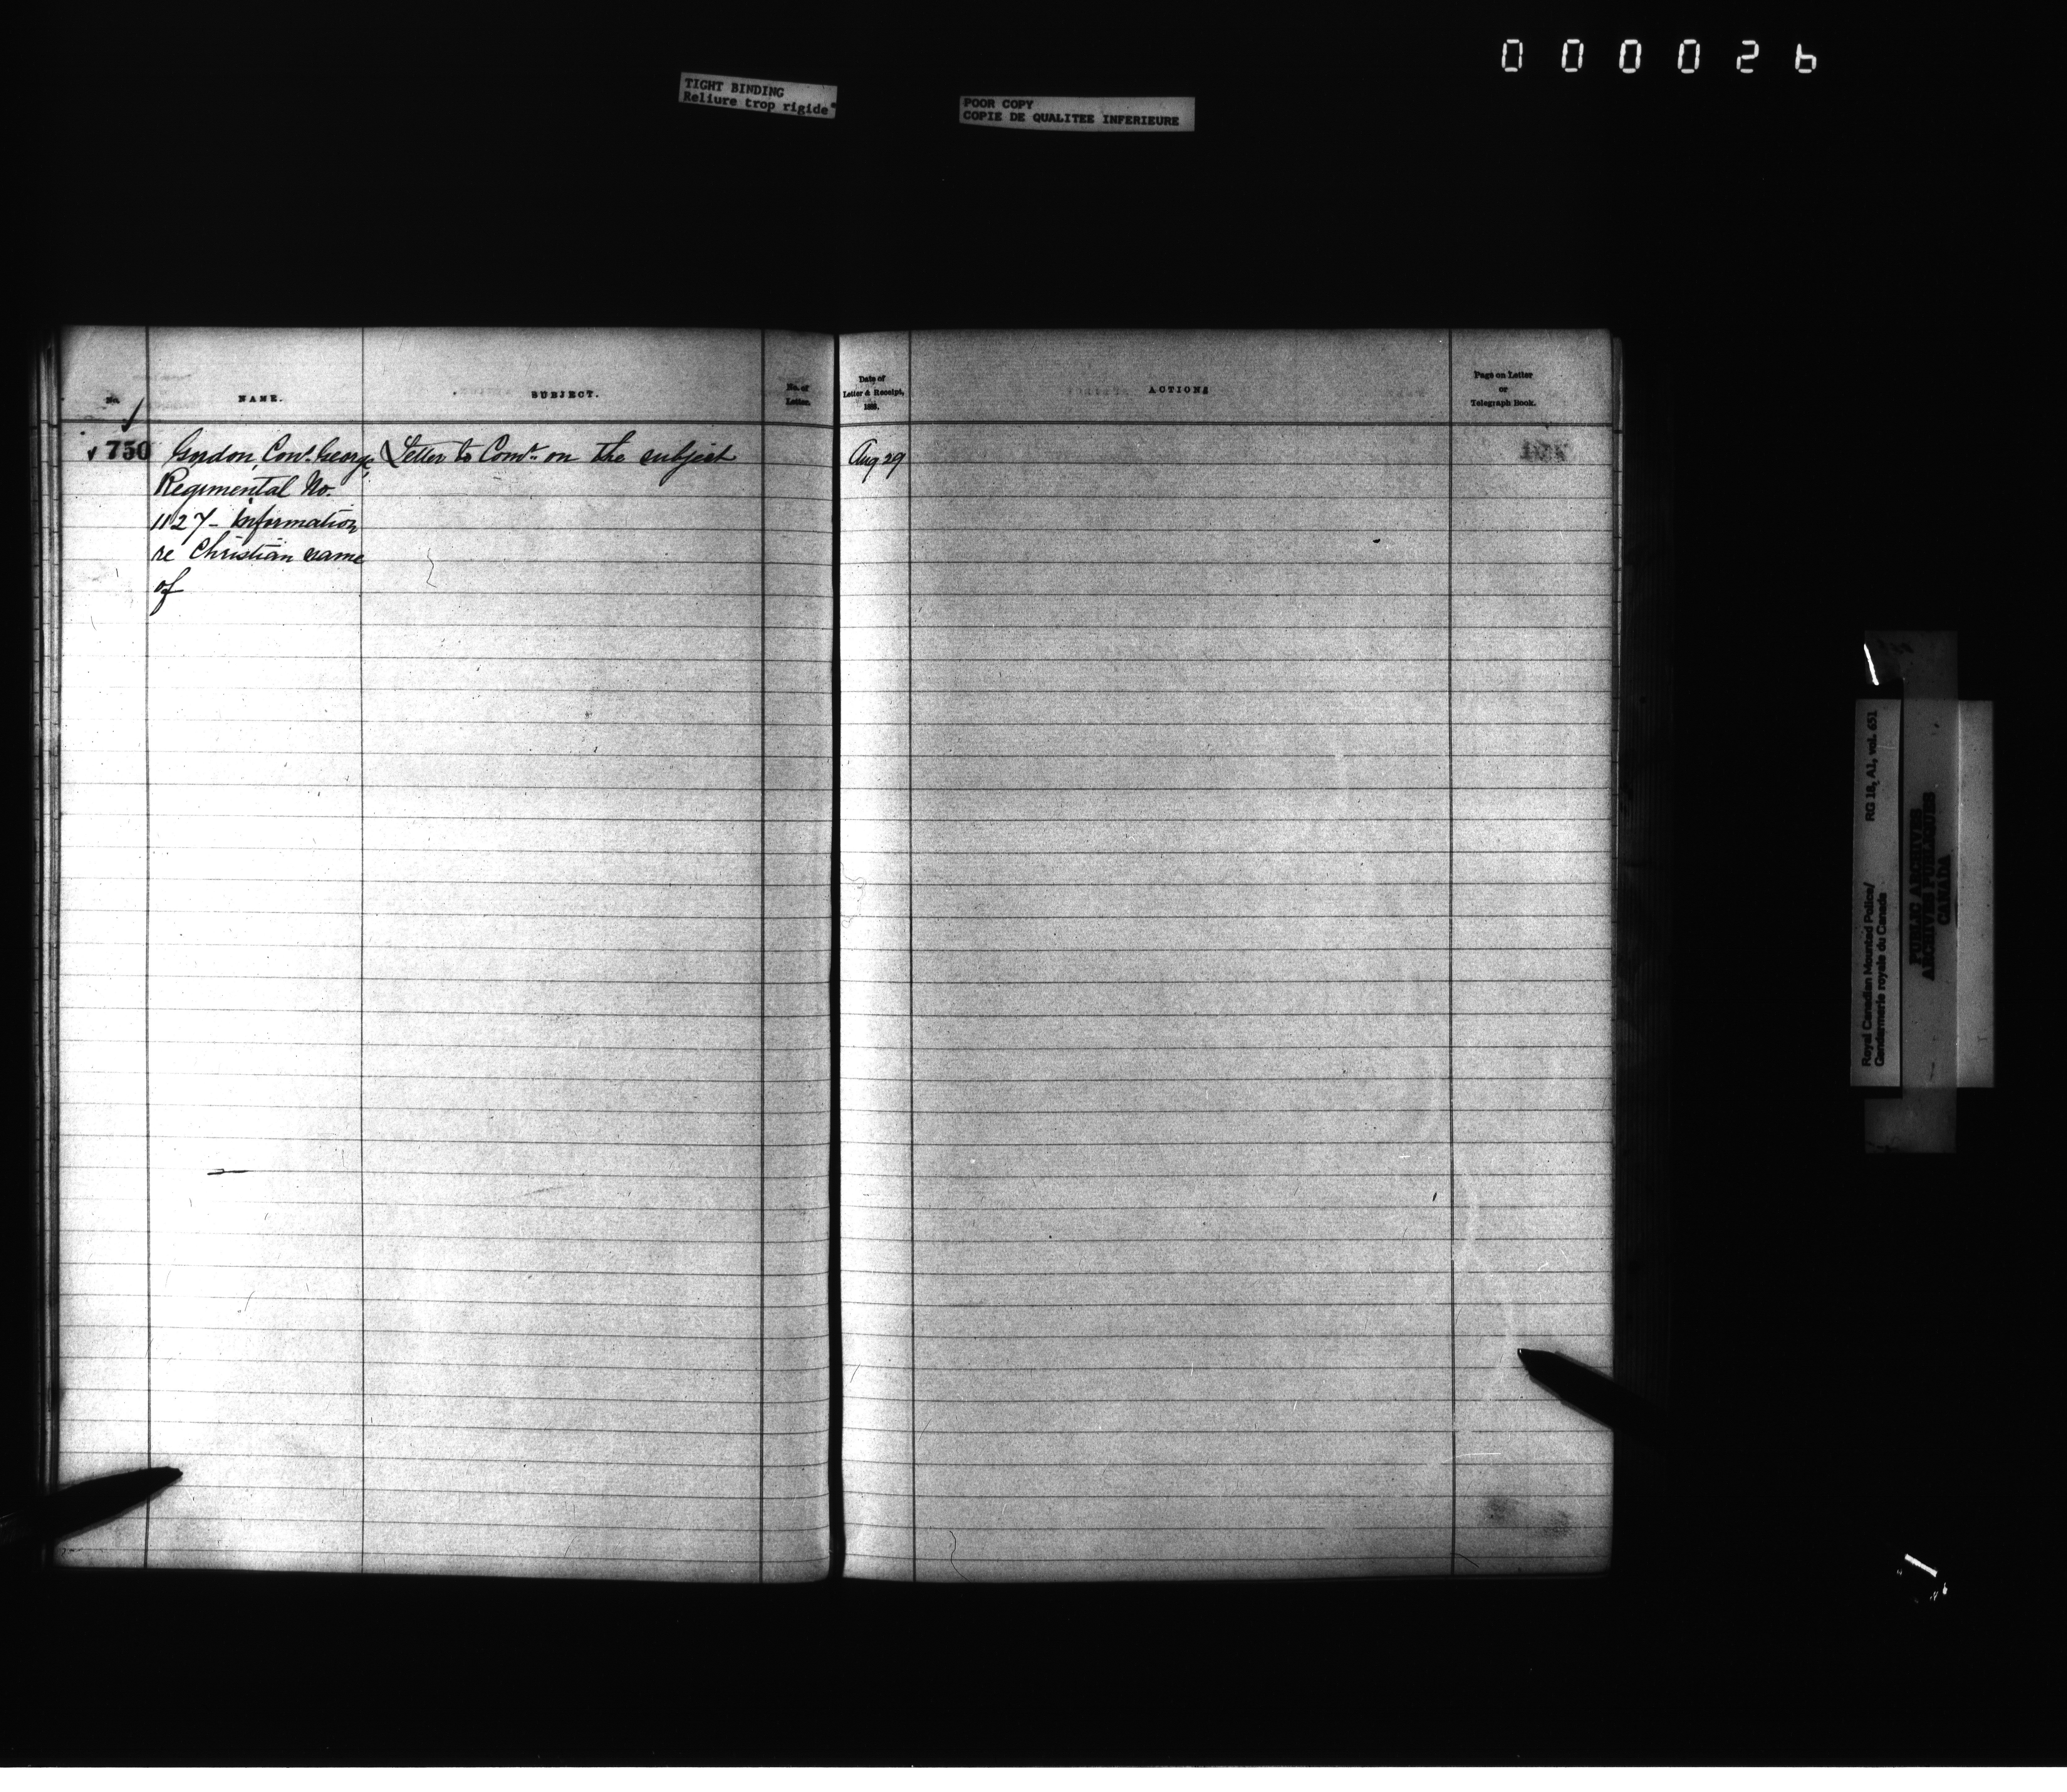 000026
TIGHT BINDING
Reliure trop rigide
POOR COPY
COPIE DE QUALITEE INFERIEURE
No.
NAME.
SUBJECT.
No. of
Letter.
Date of
Letter & Receipt,
188 .
ACTIONS
Page on Letter
or
Telegraph Book.
750 Gordon, Const. George Letter to Comr. on the subject Aug 29
Regimental No.
1127 - Information
re Christian name
of
Royal Canadian Mounted Police/ RG 18, A1, vol. 651
Gendarmerie royale du Canada
PUBLIC ARCHIVES
ARCHIVES PUBLIQUES
CANADA